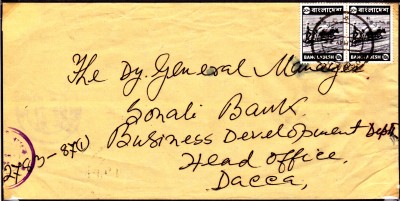 বাংলাদেশ বাংলাদেশ
BANGLADESH BANGLADESH
The Dy. General Manager
Sonali Bank.
Business Development Deptt.
Head office,
Dacca,
2783-87(1)